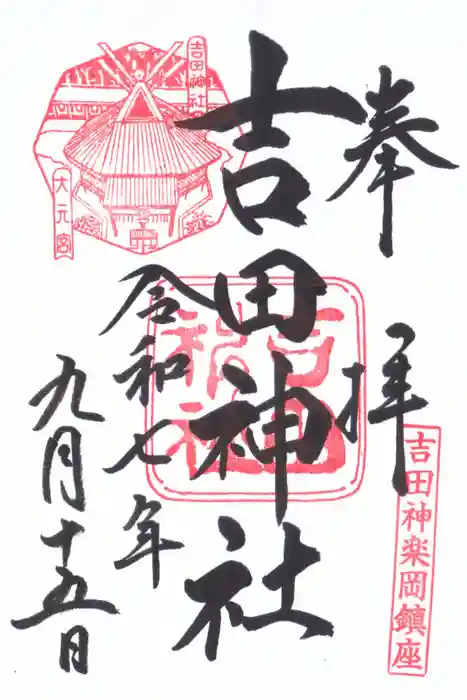 奉拝
吉田神楽岡鎮座
吉田神社
吉田神社
吉田神社
大元宮
令和七年
九月十五日